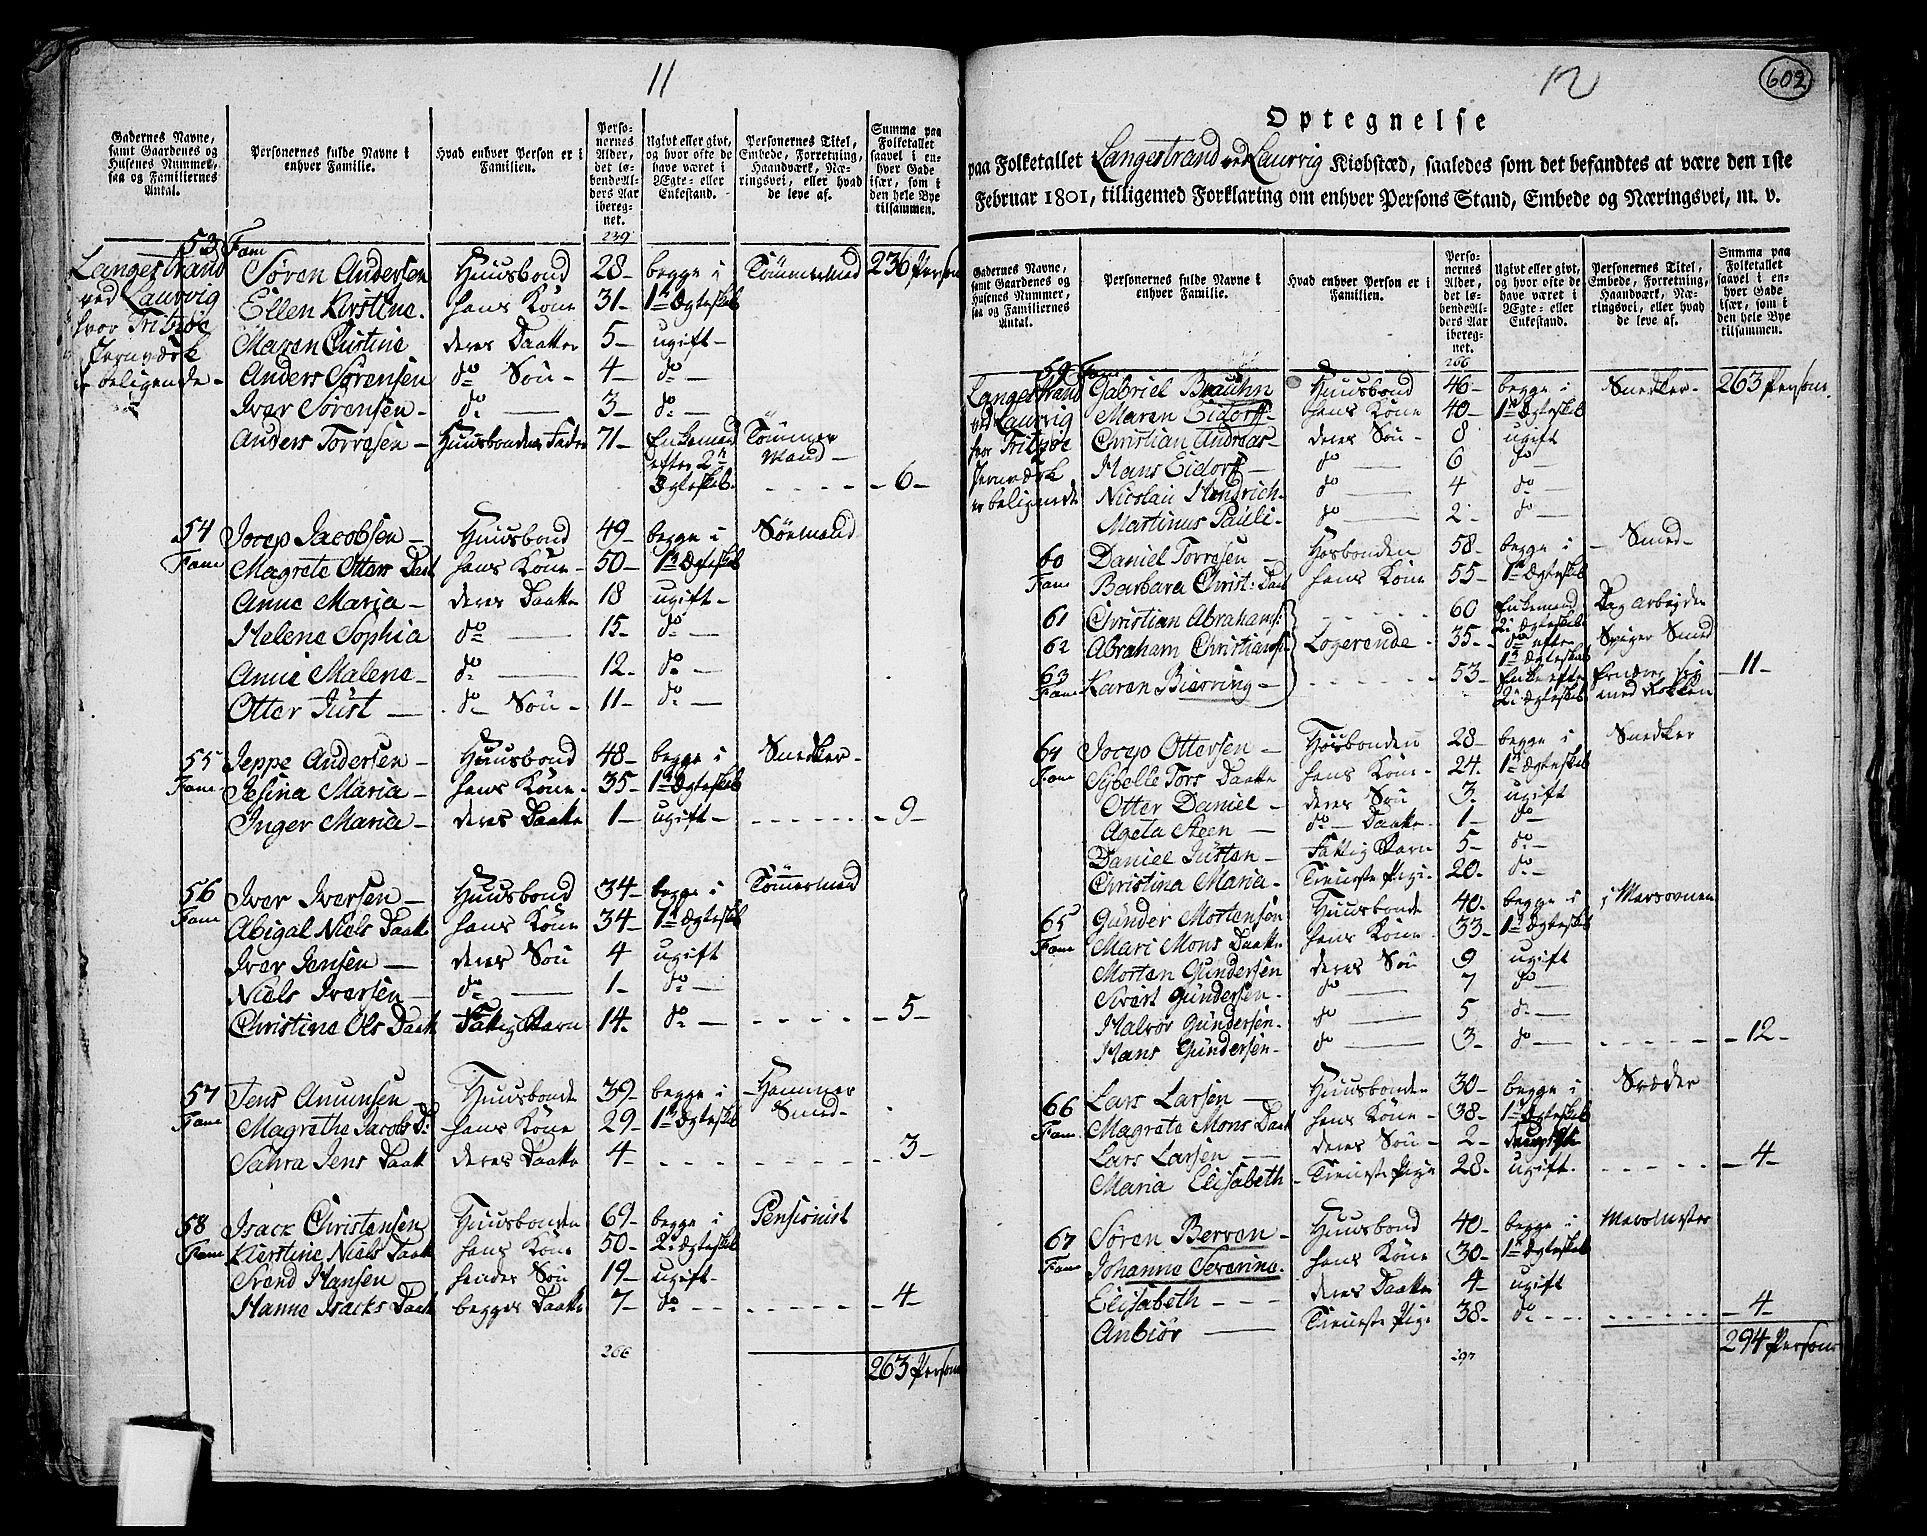 11
Gadernes Navne, samt Gaardenes og Husenes Nummer, saa og Familiernes Antal.
Personernes fulde Navne i enhver Familie.
Hvad enhver Person er i Familien.
Personernes Alder, det løbende Alders Aar iberegnet.
Ugivt eller givt, og hvor ofte de have været i Ægte- eller Enkestand.
Personernes Titel, Embede, Forretning, Haandværk, Næringsvei, eller hvad de leve af.
Summa paa Folketallet saavel i enhver Gade især, som i den hele Bye tilsammen.
239
53 Fam
Langestrand Søren Andersen Huusbond 28 begge i Tømmermand 236 Person
ved Laurvig Ellen Kirstine hans Kone 31 1te Ægteskb
hvor Fritzøe Maren Christine deres Daatter 5 ugift
Jernværk Anders Sørensen do Søn 4 do
er beligende Iver Sørensen do 3 do
Anders Torresen Huusbondens Fader 71 Enkemand Tømmer
efter 2t Mand
Ægteskb 6
54 Jocep Jacobsen Huusbond 49 begge i Søemand
Fam Magrete Otters Daat hans Kone 50 1te Ægteskb
Anne Maria deres Daatter 18 ugift
Helene Sophia do 15 do
Anne Malene do 12 do
Otter Just do Søn 11 do
55 Jeppe Andersen Huusbond 48 begge i Snedker
Fam Jesina Maria hans Kone 35 1te Ægteskb
Inger Maria deres Daatter 1 ugift 9
56 Iver Iversen Huusbond 34 begge i Tømmermand
Fam Abigal Niels Daatt hans Kone 34 1te Ægteskb
Iver Jensen deres Søn 4 ugift
Niels Iversen do 1 do
Christine Ols Daatt Fattig Barn 14 do 5
57 Jens Amunsen Huusbonde 39 begge i Hammer
Fam Magrethe Jacobs D: hans Kone 29 1te Ægteskb Smed
Sahra Jens Daatt deres Daatter 4 3
58 Isack Christensen Huusbonden 69 begge i Pensionist
Fam Kirstine Niels Daatt hans Kone 50 2t Ægteskb
Svend Hansen hendes Søn 19 ugift
Hanne Isacks Daatt begges Daatter 7 do 4
266
263 Person
12
602
Optegnelse
paa Folketallet Langestrand ved Laurvig Kiøbstæd, saaledes som det befandtes at være den 1ste
Februar 1801, tilligemed Forklaring om enhver Persons Stand, Embede og Næringsvei, m. v.
Gadernes Navne, samt Gaardenes og Husenes Nummer, saa og Familiernes Antal.
Personernes fulde Navne i enhver Familie.
Hvad enhver Person er i Familien.
Personernes Alder, det løbende Alders Aar iberegnet.
Ugivt eller givt, og hvor ofte de have været i Ægte- eller Enkestand.
Personernes Titel, Embede, Forretning, Haandværk, Næringsvei, eller hvad de leve af.
Summa paa Folketallet saavel i enhver Gade især, som i den hele Bye tilsammen.
266
59 Fam
Langestrand Gabriel Brauhn Huusbond 46 begge i Snedker 263 Person
ved Laurvig Maren Eidorff hans Kone 40 1te Ægteskb
hvor Fritzøe Christian Andreas deres Søn 8 ugift
Jernværk Hans Eidorff do 6 do
er beligende Nicolai Hendrich do 4 do
Martinus Pauli do 2 do
60 Daniel Torresen Hosbonden 58 begge i Smed
Fam Barbara Christ: Daat hans Kone 55 1te Ægteskb
61 Christian Abrahams: 60 Enkemand Dag arbejder
2t Ægteskb
62 Abraham Christians: Logerende 35 do efter Spiger Smed
1te Ægteskb
63 Karen Bierring 53 Enke efter ernærer sig 11
Fam 2t Ægteskb med Rokken
64 Jocep Ottersen Hosbonden 28 begge i Snedker
Fam Sybelle Tors Daatter hans Kone 24 1te Ægteskb
Otter Daniel deres Søn 3 ugift
Ageta Steen do Daatter 1 do
Daniel Justen Fattig Barn 5 do
Christina Maria Tieneste Pige 20 do
65 Gunder Mortensøn Huusbonde 40 begge i i Masovnen
Fam Mari Mons Daatter hans Kone 33 1te Ægteskb
Morten Gundersen deres Søn 9 ugift
Sivert Gundersen do 7 do
Halvor Gundersen do 5 do
Hans Gundersen do 3 do 12
66 Lars Larsen Huusbonde 30 begge i
Fam Magrete Mons Daat hans Kone 38 1te Ægteskb
Lars Larsen deres Søn 2
Maria Elisabeth Tieneste Pige 28 ugift 4
67 Søren Berven Huusbond 40 begge i
Fam Johanne Severine hans Kone 30 1te Ægteskb
Elisabeth deres Daatter 4 ugift
Anbiør Tieneste Pige 38 do 4
297
294 Person